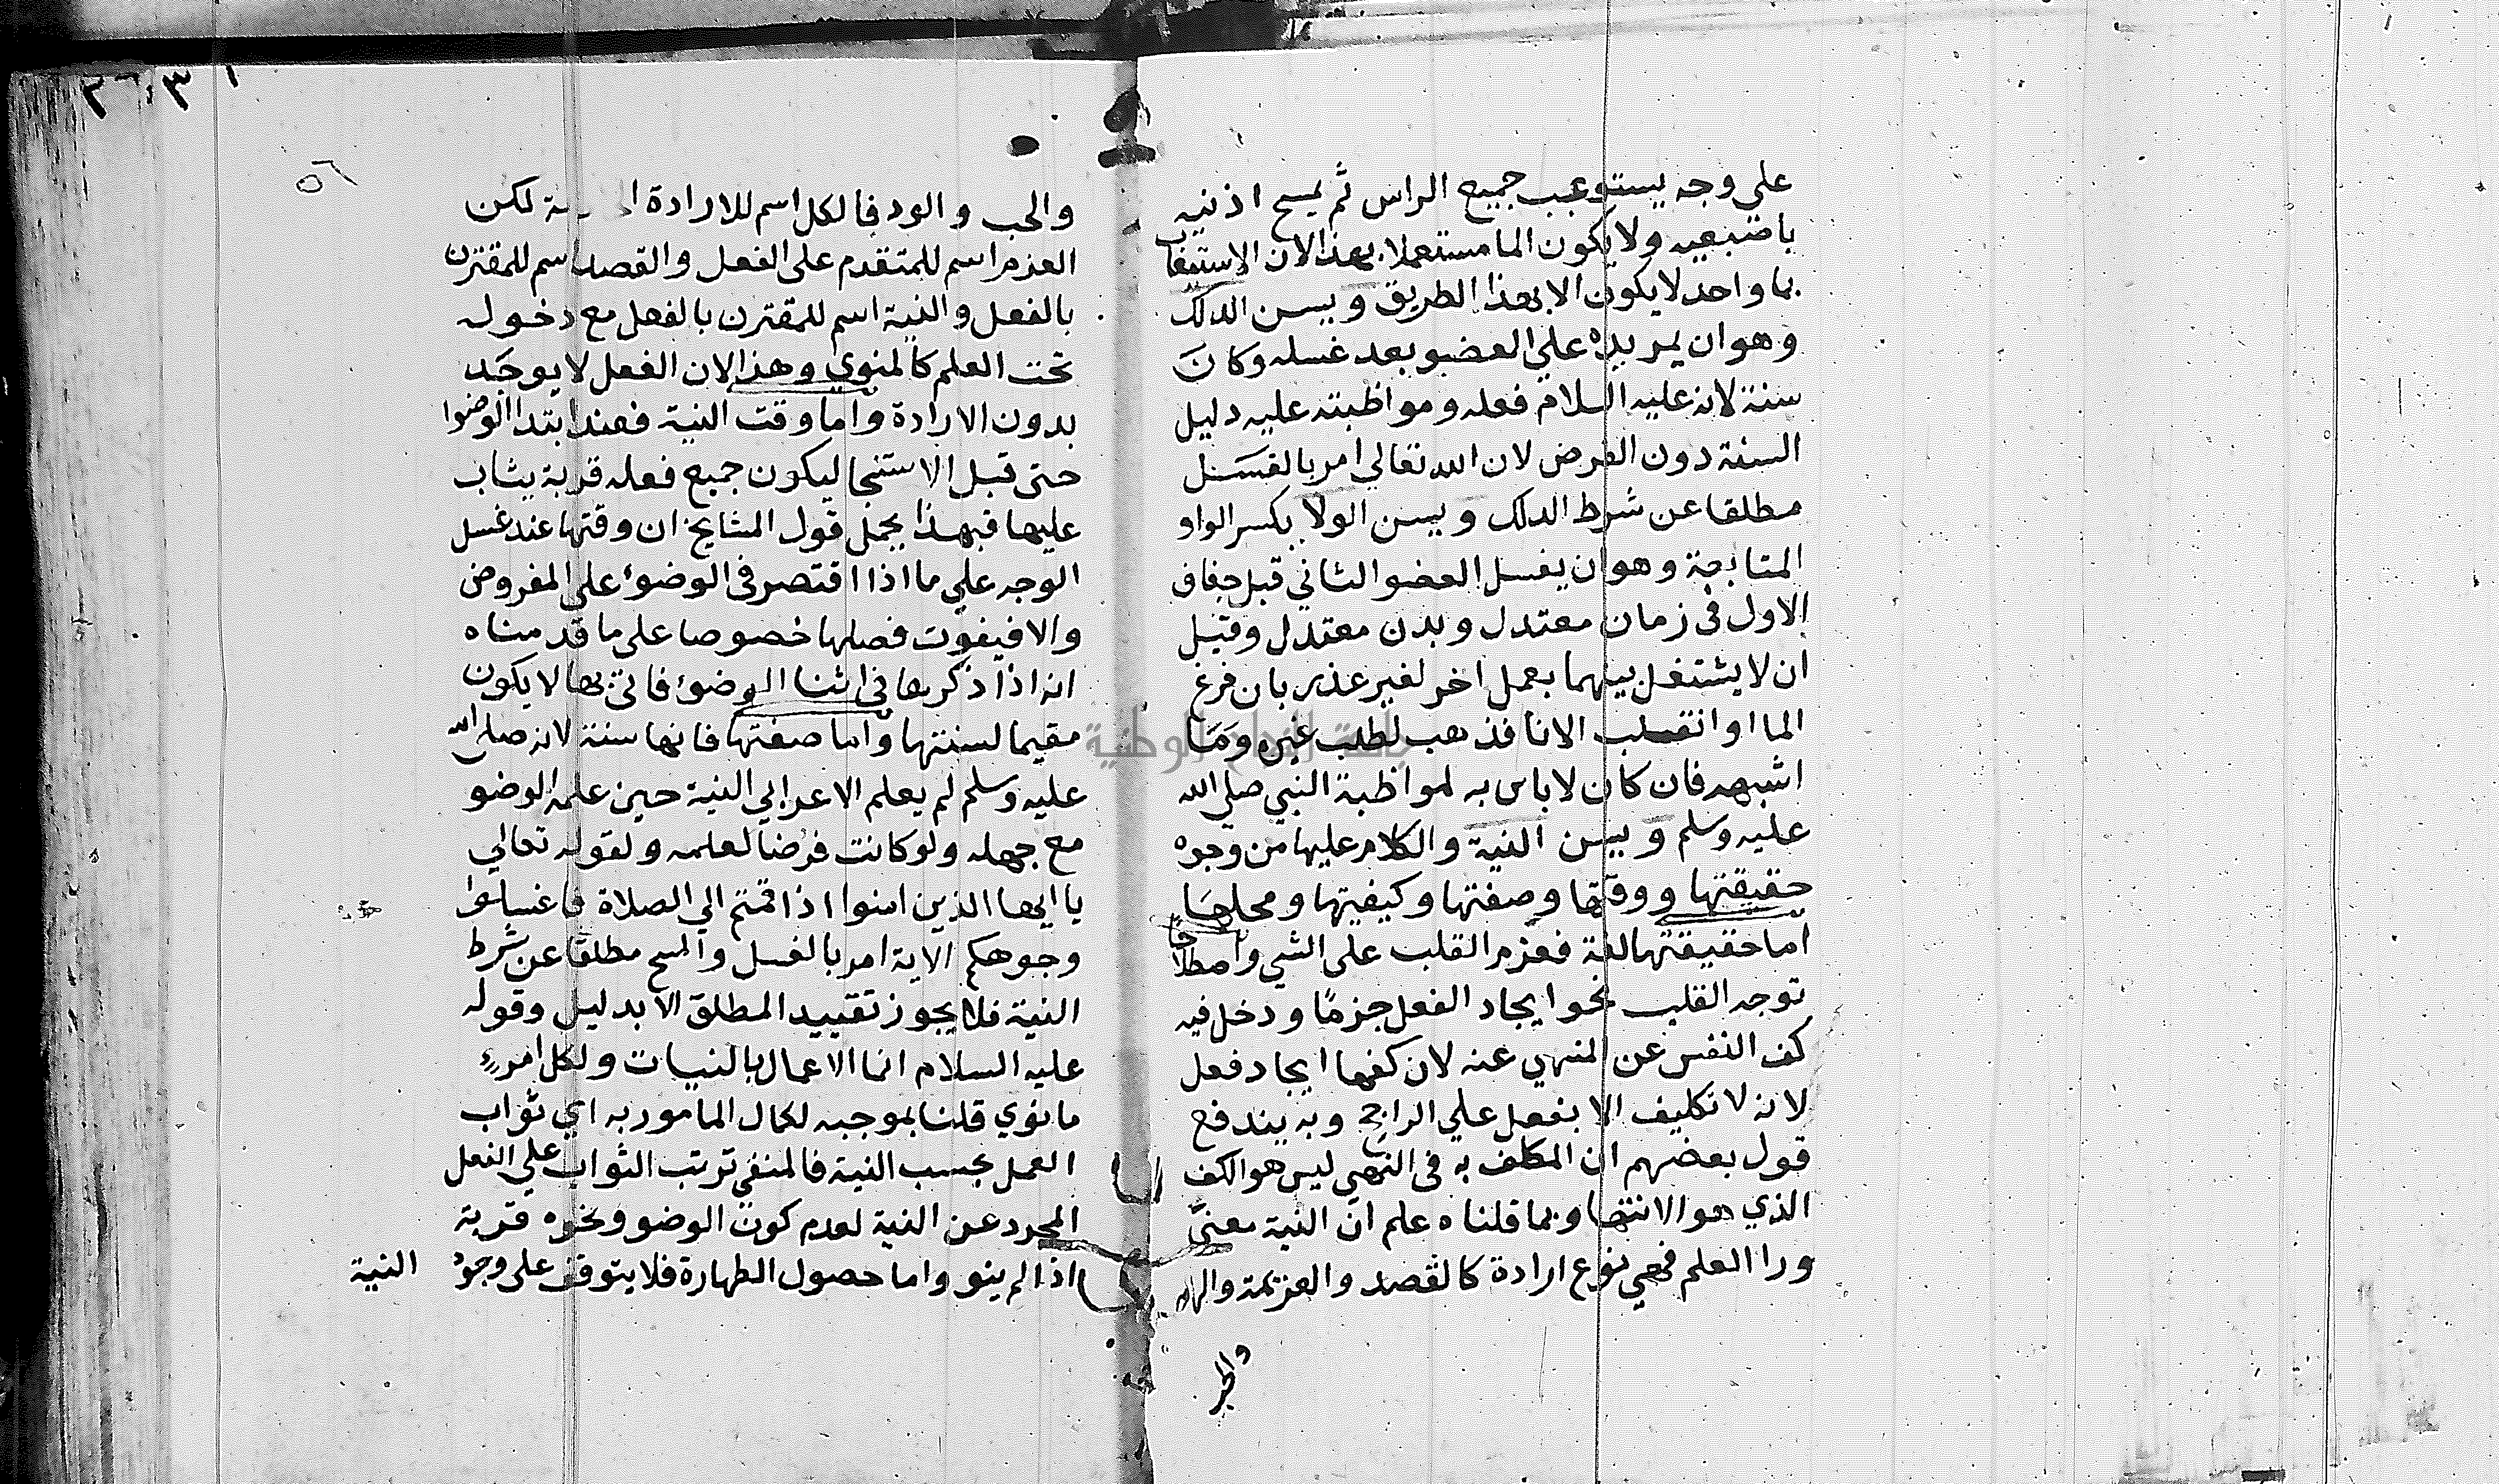 على وجه يستوعب جميع الراس ثم يمسح اذنيه
باصبعيه ولا يكون الما مستعملا بهذا لان الاستيعاب
بما واحد لا يكون الا بهذا الطريق ويسن الدلك
وهو ان يمر يده علي العضو بعد غسله وكان
سنة لانه عليه السلام فعله ومواظبته عليه دليل
السنة دون الفرض لان الله تعالي امر بالغسل
مطلقا عن شرط الدلك ويسن الولا بكسر الواو
المتابعة وهو ان يغسل العضو الثاني قبل جفاف
الاول في زمان معتدل وبدن معتدل وقيل
ان لا يشتغل بينهما بعمل اخر لغير عذر بان فرغ
الما او انقلب الانا فذهب لطلب غيره وما
اشبهه فان كان لا باس به لمواظبة النبي صلي الله
عليه وسلم ويسن النية والكلام عليها من وجوه
حقيقتها ووقتها وصفتها وكيفيتها ومحلها
اما حقيقتها لغة فعزم القلب على الشي واصطلاحا
توجه القلب نحو ايجاد الفعل جزمًا ودخل فيه
كف النفس عن المنهي عنه لان كفها ايجاد فعل
لانه لا تكليف الا بفعل علي الراجح وبه يندفع
قول بعضهم ان المكلف به في النهي ليس هو الكف
الذي هو الانتها وبما قلناه علم ان النية معنى
ورا العلم فهي نوع ارادة كالقصد والعزيمة والهم
والحب
٥٦
والحب والود فالكل اسم للارادة لكن
العزم اسم للمتقدم على الفعل والقصد اسم للمقترن
بالفعل والنية اسم للمقترن بالفعل مع دخوله
تحت العلم كالمنوي وهذا لان الفعل لا يوجد
بدون الارادة واما وقت النية فعند ابتدا الوضوا
حتى قبل الاستنجا ليكون جميع فعله قربة يثاب
عليها فبهذا يحمل قول المشايخ ان وقتها عند غسل
الوجه علي ما اذا اقتصر في الوضوء علي المفروض
والا فيفوت فضلها خصوصا على ما قدمناه
انه اذا ذكرها في اثنا الوضوء فاتي بها لا يكون
مقيما لسنتها واما صفتها فانها سنة لانه صلى الله
عليه وسلم لم يعلم الاعرابي النية حين علمه الوضو
مع جهله ولو كانت فرضا لعلمه ولقوله تعالي
يا ايها الذين امنوا اذا قمتم الي الصلاة فاغسلوا
وجوهكم الاية امر بالغسل والمسح مطلقا عن شرط
النية فلا يجوز تقييد المطلق الا بدليل وقوله
عليه السلام انما الاعمال بالنيات ولكل امرء
ما نوي قلنا بموجبه لكمال المامور به اي ثواب
العمل بحسب النية فالمنفي ترتب الثواب علي الفعل
المجرد عن النية لعدم كون الوضو ونحوه قربة
اذا لم ينو واما حصول الطهارة فلا يتوقف على وجود
النية
جامعة النجاح الوطنية